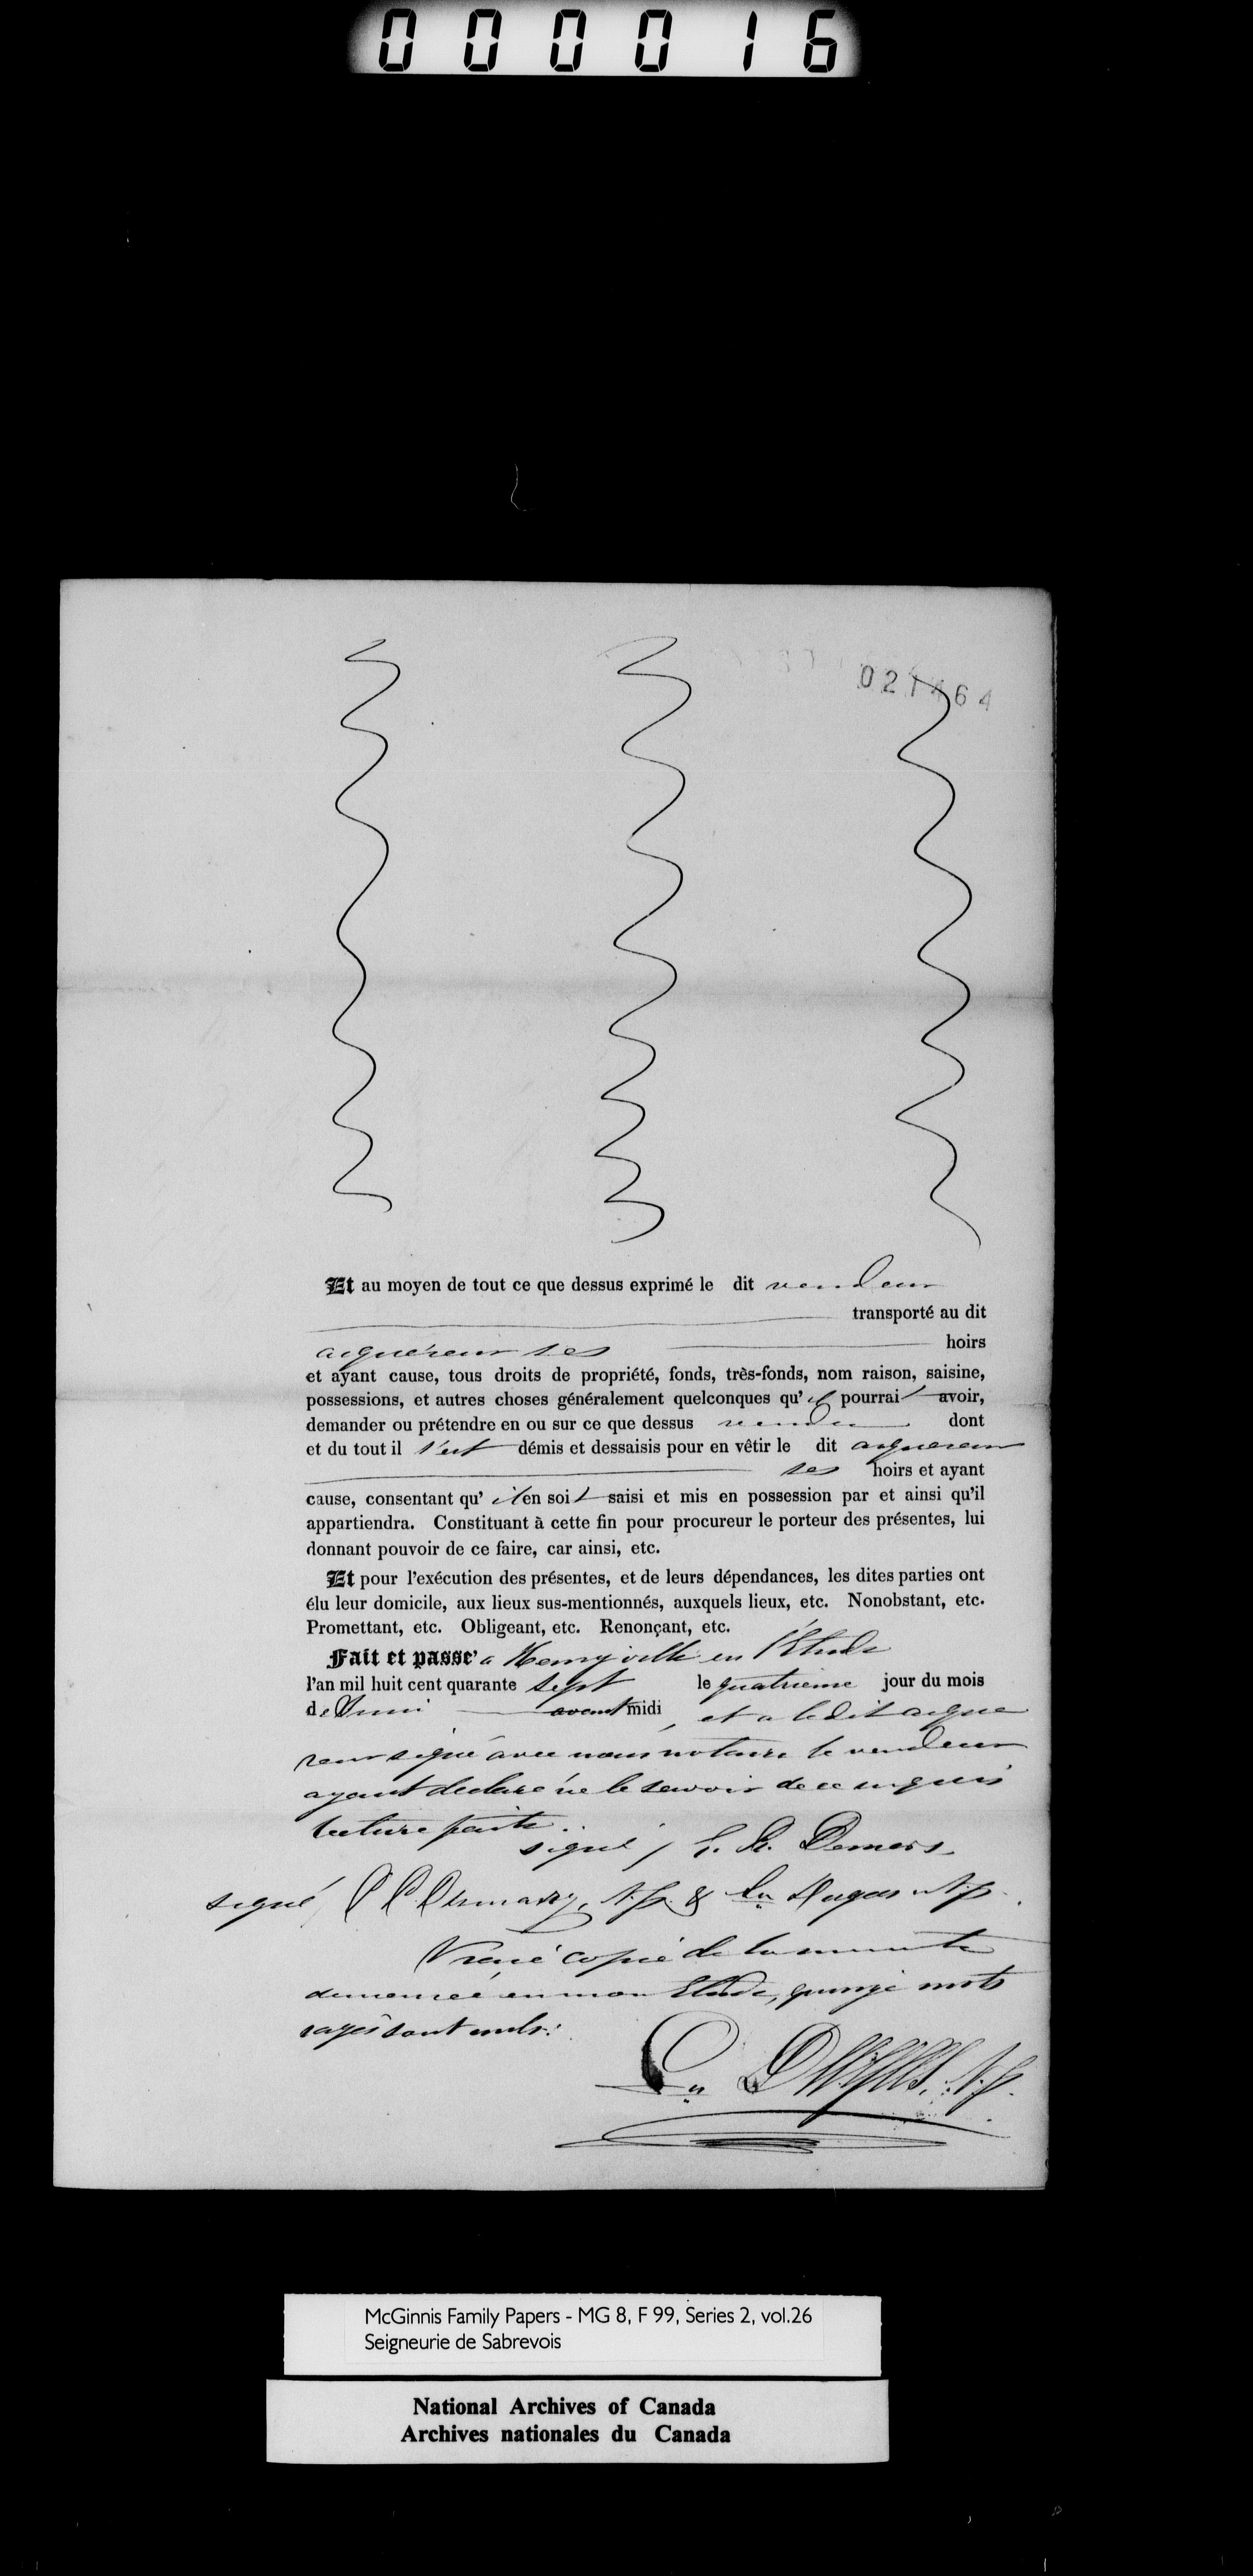 000016
021464
Et au moyen de tout ce que dessus exprimé le dit vendeur
transporté au dit
acquéreur ses hoirs
et ayant cause, tous droits de propriété, fonds, très-fonds, nom raison, saisine,
possessions, et autres choses généralement quelconques qu' il pourrait avoir,
demander ou prétendre en ou sur ce que dessus vendu dont
et du tout il s'est démis et dessaisis pour en vêtir le dit acquereur
ses hoirs et ayant
cause, consentant qu' il en soit saisi et mis en possession par et ainsi qu'il
appartiendra. Constituant à cette fin pour procureur le porteur des présentes, lui
donnant pouvoir de ce faire, car ainsi, etc.
Et pour l'exécution des présentes, et de leurs dépendances, les dites parties ont
élu leur domicile, aux lieux sus-mentionnés, auxquels lieux, etc. Nonobstant, etc.
Promettant, etc. Obligeant, etc. Renonçant, etc.
Fait et passé a Henryville en l'Etude
l'an mil huit cent quarante sept le quatrieme jour du mois
de Juin avant midi, et a le dit acque
reur signé avec nous notaire le vendeur
ayant déclaré ne le savoir de ce enquis
lecture faite.
signé / Demers
signé / N.P. & Ln Dugas N.P.
Vraie copie de la minute
demeurée en mon Etude, quinze mots
rayés sont nuls.
Ln N.P.
McGinnis Family Papers - MG 8, F 99, Series 2, vol.26
Seigneurie de Sabrevois
National Archives of Canada
Archives nationales du Canada